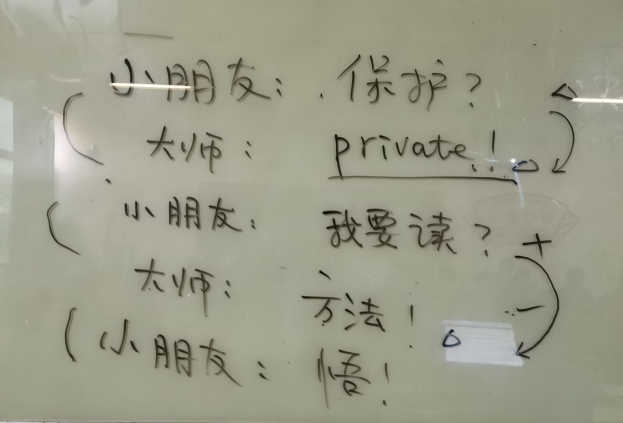 小朋友：保护？
大师：private！
小朋友：我要读？+
大师：方法！-
小朋友：悟！